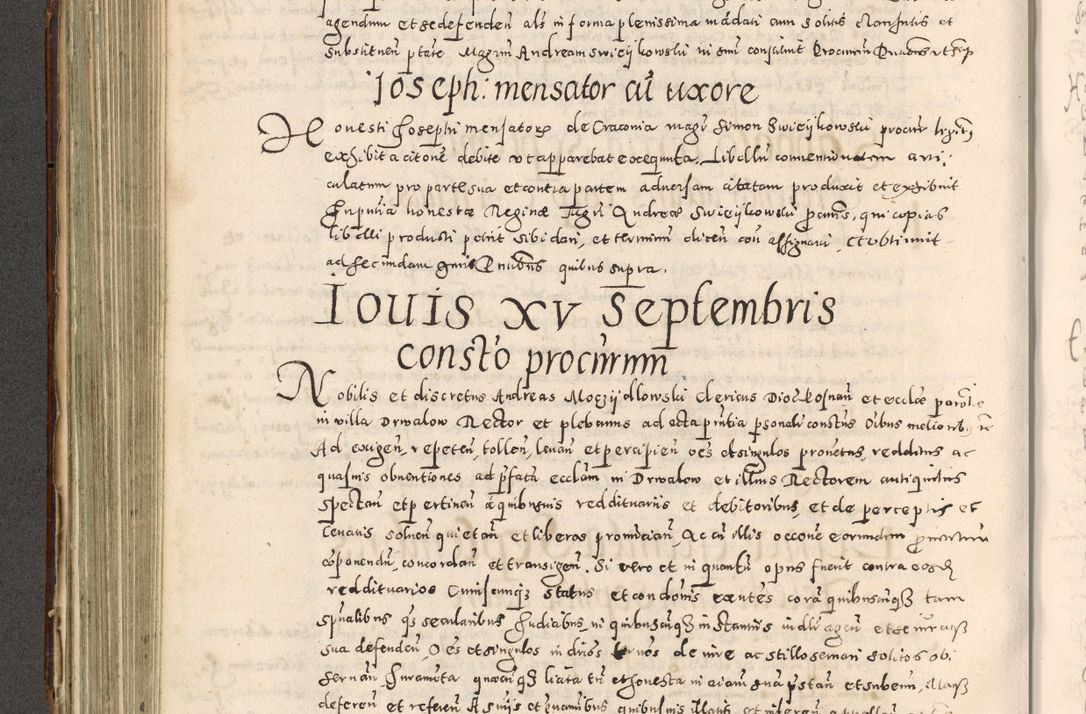 agendum et se defendeñ als in forma plenissima mãdati cum solitis clausulis et
substitueñ ptate Magrm Andream Swieijkowski in suũ constituit Procurem
Joseph: mensator cũ uxore
Honesti Josephi mensatoris de Cracouia magr Simon Zwieijkowski procur
exhibita citone debite ut apparebat exequuta. Libellũ conuentionalem arti-
culatum pro parte sua et contra partem aduersam citatam produxit et exhibuit
In pñtia honestæ Reginæ Magri Andreæ Swieijkowski procuris, qui copias
libelli producti petiit sibi dari, et terminũ diceñ cou assignari. et obtinuit
ad secundam Quibus supra.
Iouis XV Septembris
consto procurum
Nobilis et discretus Andreas Moczijdlowski Clericus Dioc Posnañ et ecclæ paroles
in villa Drwalow Rector et plebanus ad acta pñtia psonalr constus Oibus melioribus
Ad exigeñ, repeteñ, tolleñ, leuañ et percipieñ oẽs et singulos prouetus, redditus ac
quasuis obuentiones ad pfatã ecclam in Drwalow et illius Rectorem antiquitus
spectañ et pertineñ a quibusuis reddituariis et debitoribus, et de perceptis et
leuatis solueñ quietañ et liberos pronuciañ, Ac cũ illis occone eorundem
coponendũ, concordañ et transigeñ. Si vero et in quantũ opus fuerit contra eosdem
reddituarios Cuiuscunq status et condonis exñtes corã quibuscũq tam
spualibus q secularibus Judicibus, in quibuscũq instantiis iudlr ageñ et se iuraq
sua defendeñ, Oẽs et singulos in driis tmos de iure ac stillo seruari solitos ob-
seruañ, Juramta quæcũq licita tñ et honesta in eiam suã pstañ et subeuñ, illaq
defereñ et refereñ